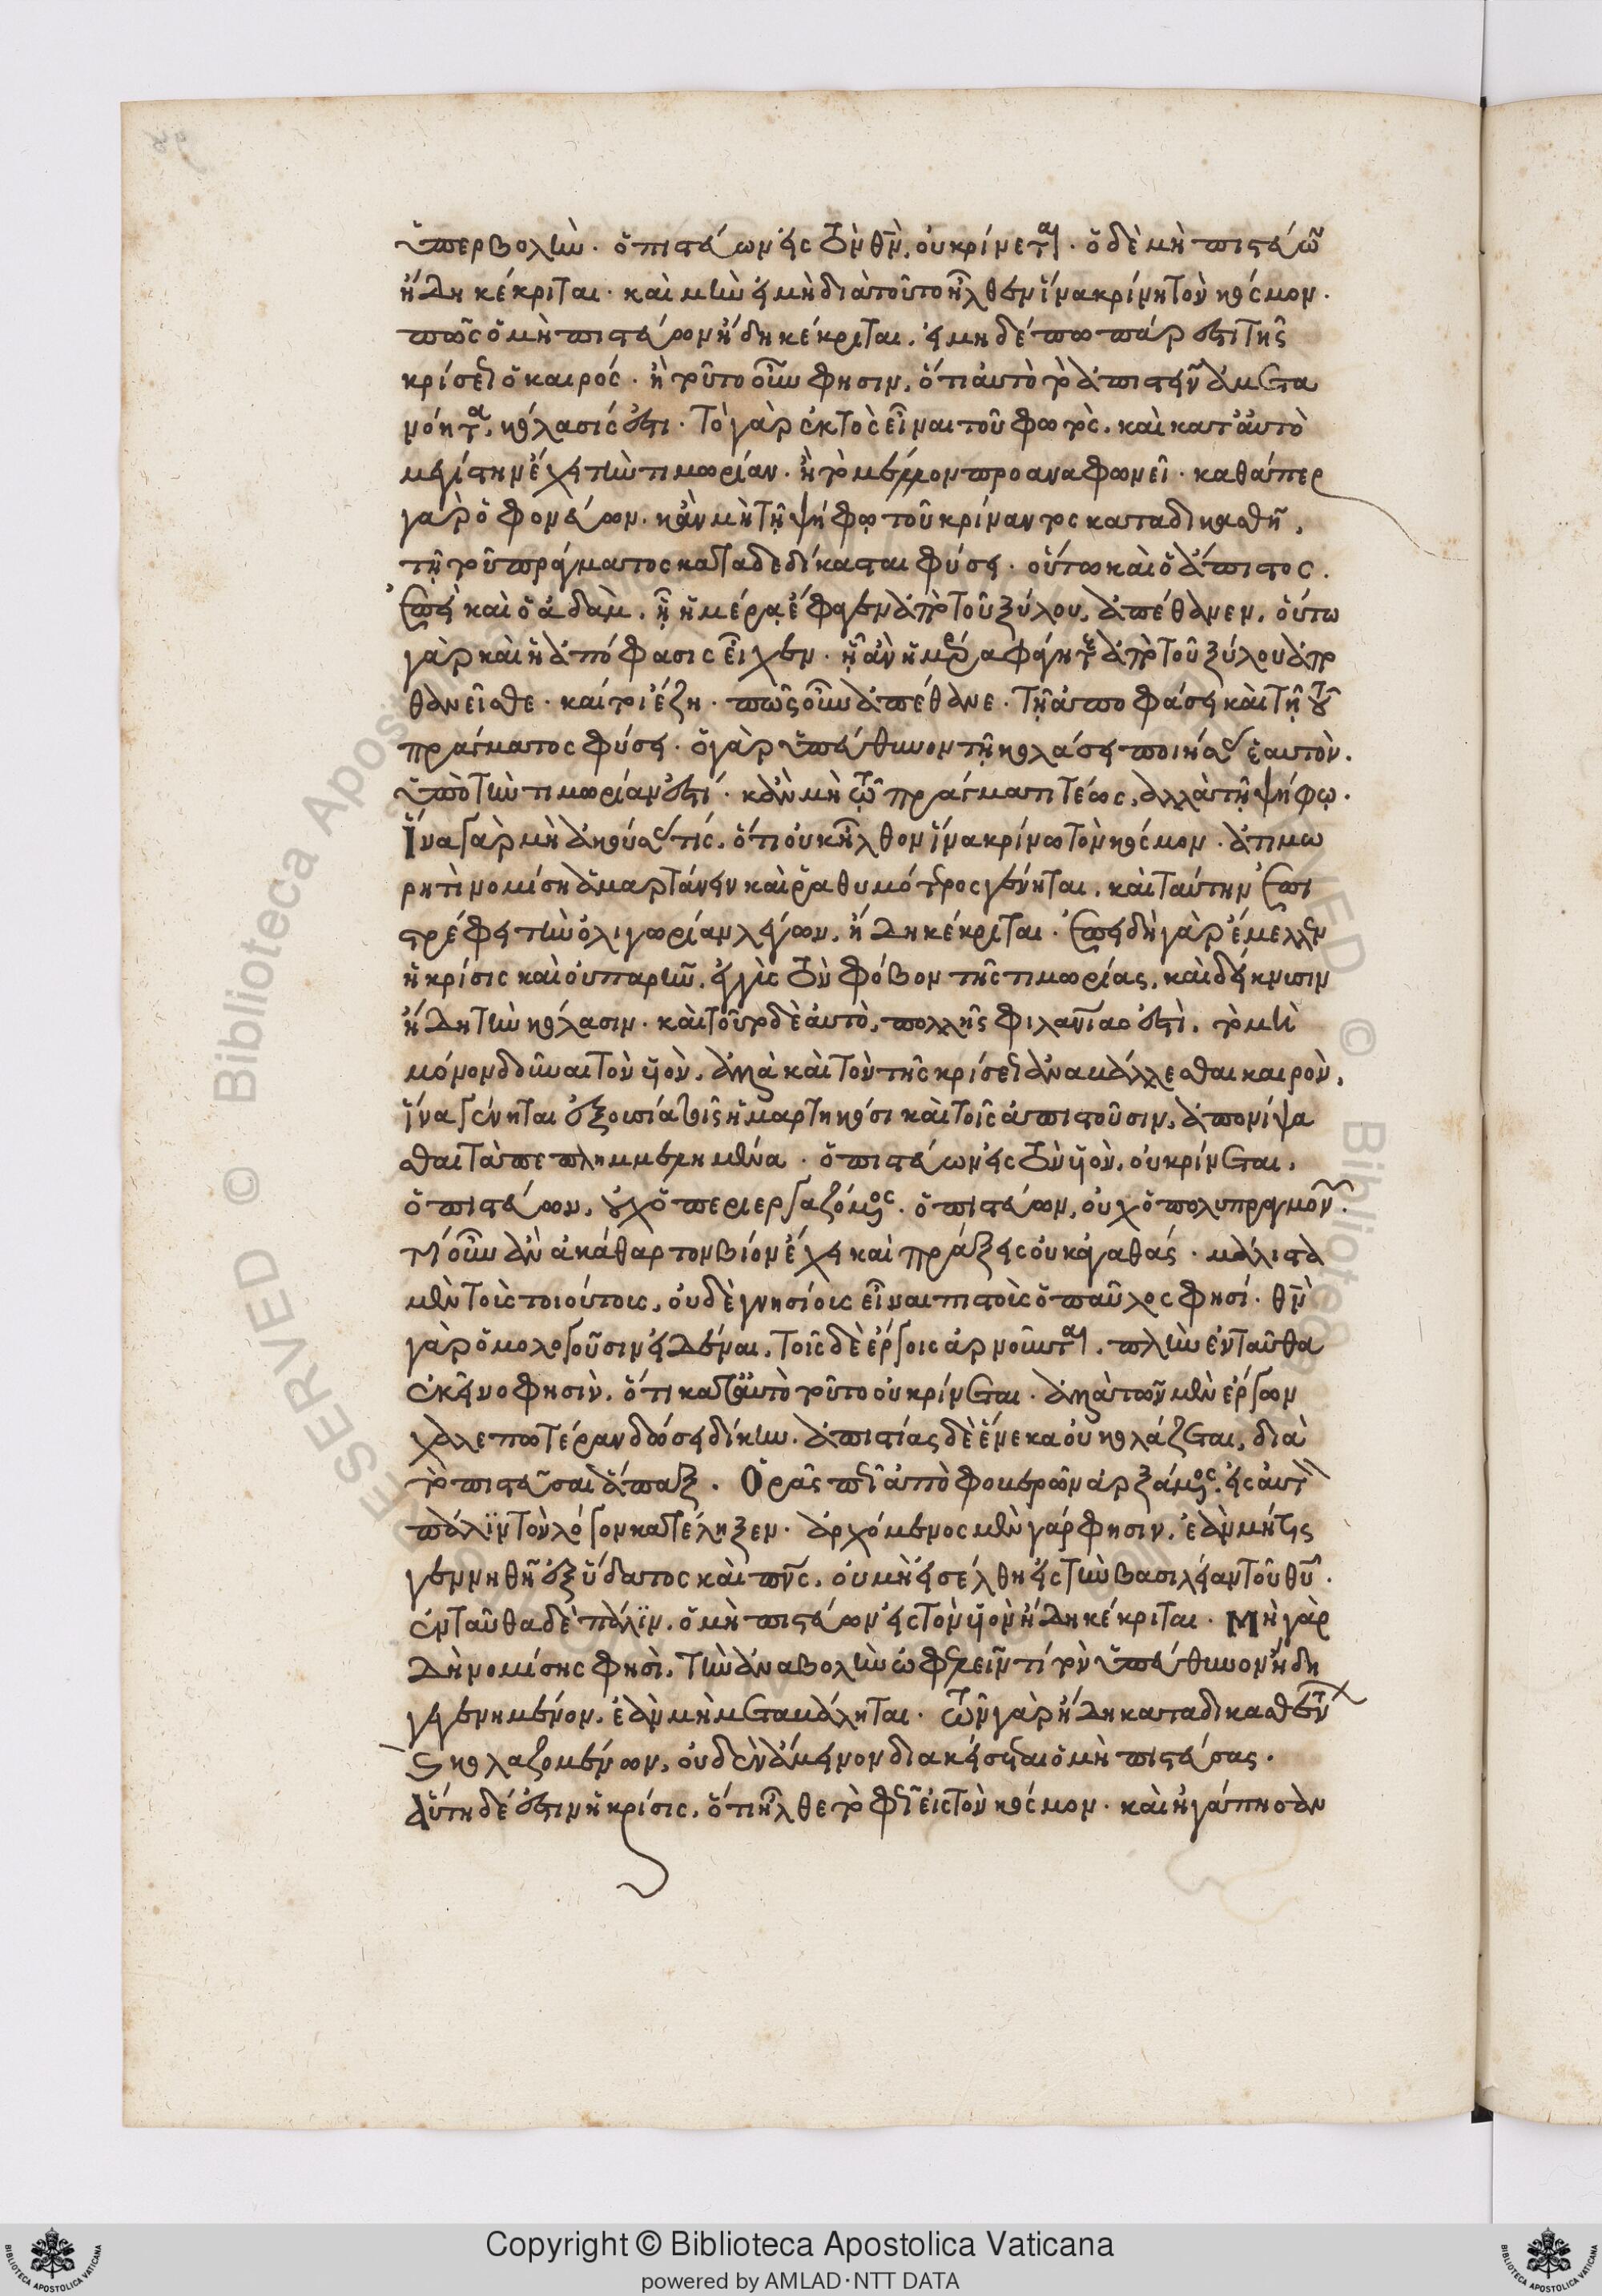 ὑπερβολήν. ὁ πιστεύων εἰς τὸν θν̄, οὐ κρίνεται. ὁ δὲ μὴ πιστεύων
ἤδη κέκριται. καὶ μὴν εἰ μὴ διὰ τοῦτο ἦλθεν ἵνα κρίνη τὸν κόσμον.
πῶς ὁ μὴ πιστεύων ἤδη κέκριται, εἰ μηδέπω πάρεστι τῆς
κρίσεως ὁ καιρός. ἢ τοῦτο οὖν φησιν, ὅτι αὐτὸ τὸ ἀπιστεῖν ἀμετα
νόητα, κόλασίς ἐστι. Τὸ γὰρ ἐκτὸς εἶναι τοῦ φωτὸς, καὶ κατ' αὐτὸ
μεγίστην ἔχει τὴν τιμωρίαν. ἢ τὸ μέλλον προαναφωνεῖ. καθάπερ
γὰρ ὁ φονεύων. κἂν μὴ τῆ ψήφω τοῦ κρίναντος καταδικασθῆ,
τῆ τοῦ πράγματος καταδεδίκασται φύσει. οὕτω καὶ ὁ ἄπιστος.
ἐπεὶ καὶ ὁ ἀδὰμ, ἧ ἡμέρα ἔφαγεν ἀπὸ τοῦ ξύλου, ἀπέθανεν, οὕτω
γὰρ καὶ ἡ ἀπόφασις εἶχεν. ἧ ἂν ἡμέρα φάγητε ἀπὸ τοῦ ξύλου ἀπο
θανεῖσθε. καί τοι ἔζη. πῶς οὖν ἀπέθανε. Τῆ ἀποφάσει καὶ τῆ τοῦ
πράγματος φύσει. ὁ γὰρ ὑπεύθυνον τῆ κολάσει ποιήσας ἑαυτὸν.
ὑπὸ τὴν τιμωρίαν ἐστί. κἂν μὴ τῶ πράγματι τέως, ἀλλὰ τῆ ψήφω.
Ἵνα γὰρ μὴ ἀκούσας τίς, ὅτι οὐκ ἦλθον ἵνα κρίνω τὸν κόσμον. ἀτιμω
ρητὶ νομίση ἁμαρτάνειν καὶ ῥαθυμότερος γένηται, καὶ ταύτην ἐπι
στρέφει τὴν ὀλιγωρίαν λέγων, ἤδη κέκριται. ἐπειδὴ γὰρ ἔμελλεν
ἡ κρίσις καὶ οὐ παρῆν, ἐγγὺς τὸν φόβον τῆς τιμωρίας, καὶ δείκνυσιν
ἤδη τὴν κόλασιν. καὶ τοῦτο δὲ αὐτὸ, πολλῆς φιλανίας ἐστὶ, τὸ μὴ
μόνον δοῦναι τὸν υἱὸν, ἀλλὰ καὶ τὸν τῆς κρίσεως ἀναβάλλεσθαι καιρὸν,
ἵνα γένηται ἐξουσία τοῖς ἡμαρτηκόσι καὶ τοῖς ἀπιστοῦσιν, ἀπονίψα
σθαι τὰ πεπλημμελημένα. ὁ πιστεύων εἰς τὸν υἱὸν, οὐ κρίνεται,
ὁ πιστεύων, οὐχ ὁ περιεργαζόμενος. ὁ πιστεύων, οὐχ ὁ πολυπραγμονῶν.
Τί οὖν ἂν ἀκάθαρτον βίον ἔχη καὶ πράξεις οὐκ ἀγαθάς. μάλιστα
μὲν τοὺς τοιούτους, οὐδὲ γνησίους εἶναι πιστοὺς ὁ παῦλος φησί. θν̄
γὰρ ὁμολογοῦσιν εἰδέναι, τοῖς δὲ ἔργοις ἀρνοῦνται. πλὴν ἐνταῦθα
ἐκεῖνο φησὶν, ὅτι κατ' αὐτὸ τοῦτο οὐ κρίνεται. ἀλλὰ τῶν μὲν ἔργων
χαλεπωτέραν δώσει δίκην. ἀπιστίας δὲ ἕνεκα οὐ κολάζεται, διὰ
τὸ πιστεῦσαι ἅπαξ. Ὁρᾶς πῶς ἀπὸ φοβερῶν ἀρξάμενος, εἰς αὐτὰ
πάλιν τὸν λόγον κατέληξεν. ἀρχόμενος μὲν γάρ φησιν, ἐὰν μήτις
γεννηθῆ ἐξ ὕδατος καὶ πν̄ς, οὐ μὴ εἰσέλθη εἰς τὴν βασιλείαν τοῦ θῡ.
ἐνταῦθα δὲ πάλιν, ὁ μὴ πιστεύων εἰς τὸν υἱὸν ἤδη κέκριται. Μὴ γὰρ
δὴ νομίσης φησὶ, τὴν ἀναβολὴν ὠφελεῖν τί τὸν ὑπεύθυνον ἤδη
γεγενημένον, ἐὰν μὴ μεταβάληται. τῶν γὰρ ἤδη καταδικασθέντων
κολαζομένων, οὐδὲν ἄμεινον διακείσεται ὁ μὴ πιστεύσας.
Αὕτη δέ ἐστιν ἡ κρίσις, ὅτι ἦλθε τὸ φῶς εἰς τὸν κόσμον. καὶ ἠγάπησαν
Copyright © Biblioteca Apostolica Vaticana
powered by AMLAD·NTT DATA